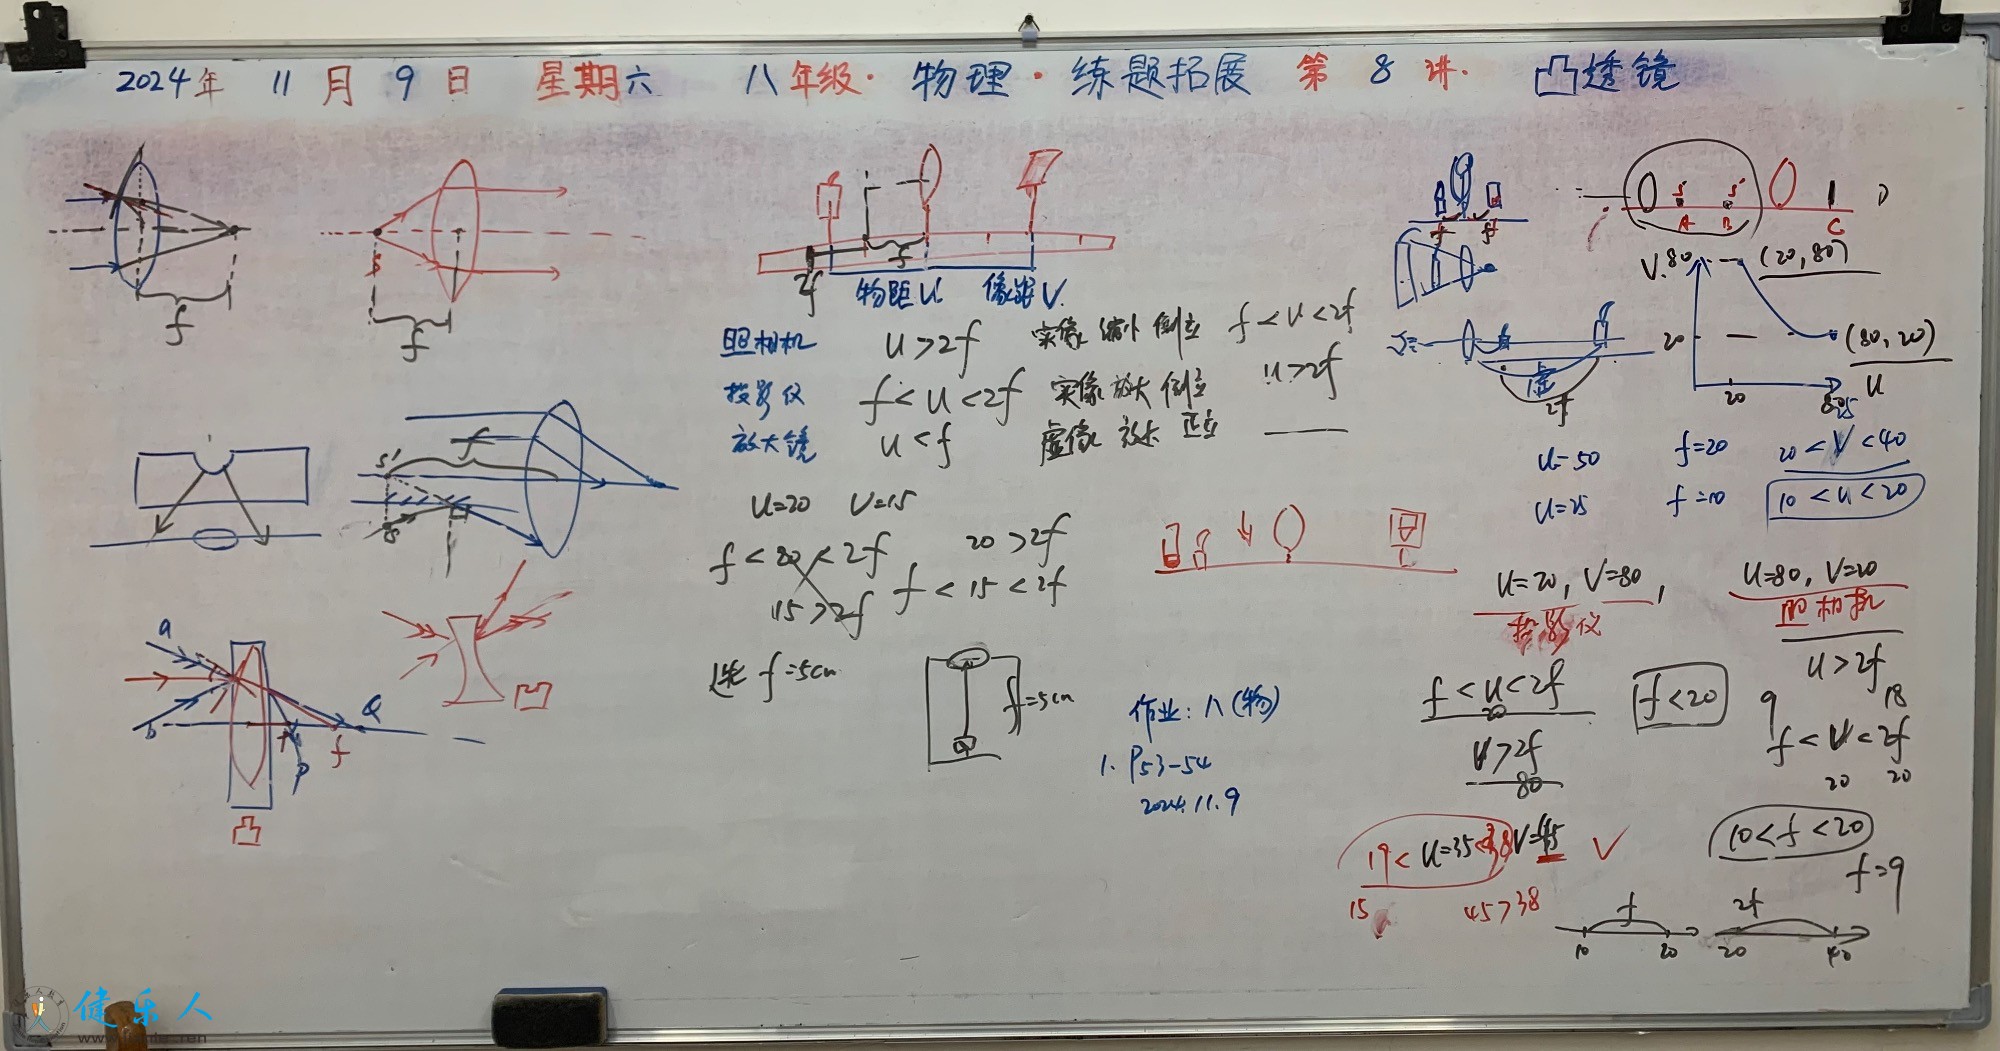 2024年 11月 9日 星期六 八年级·物理·练题拓展 第 8 讲· 凸透镜
f
f
f
2f
物距U 像距V.
照相机 U>2f 实像 缩小 倒立 f<V<2f
投影仪 f<U<2f 实像 放大 倒立 U>2f
放大镜 U<f 虚像 放大 正立 ——
U=20 V=15
f<20<2f 20>2f
15>2f f<15<2f
选 f=5cm
f=5cm
作业: 八(物)
1. P53-54
2024.11.9
S' f
S
a
b
Q
f
P
凸
凹
f f
S S'
A B C D
V.80 (20,80)
20 (80,20)
20 80 U
25
虚
2f
U=50 f=20 20<V<40
U=25 f=10 10<U<20
U=20, V=80, U=80, V=20
投影仪 照相机
f<U<2f f<20 U>2f
20
V>2f
80
9 18
f<V<2f
20 20
19<U=35<38 V=45 ✓
15 45>38
10<f<20
f=9
f 2f
10 20 20 40
健乐人